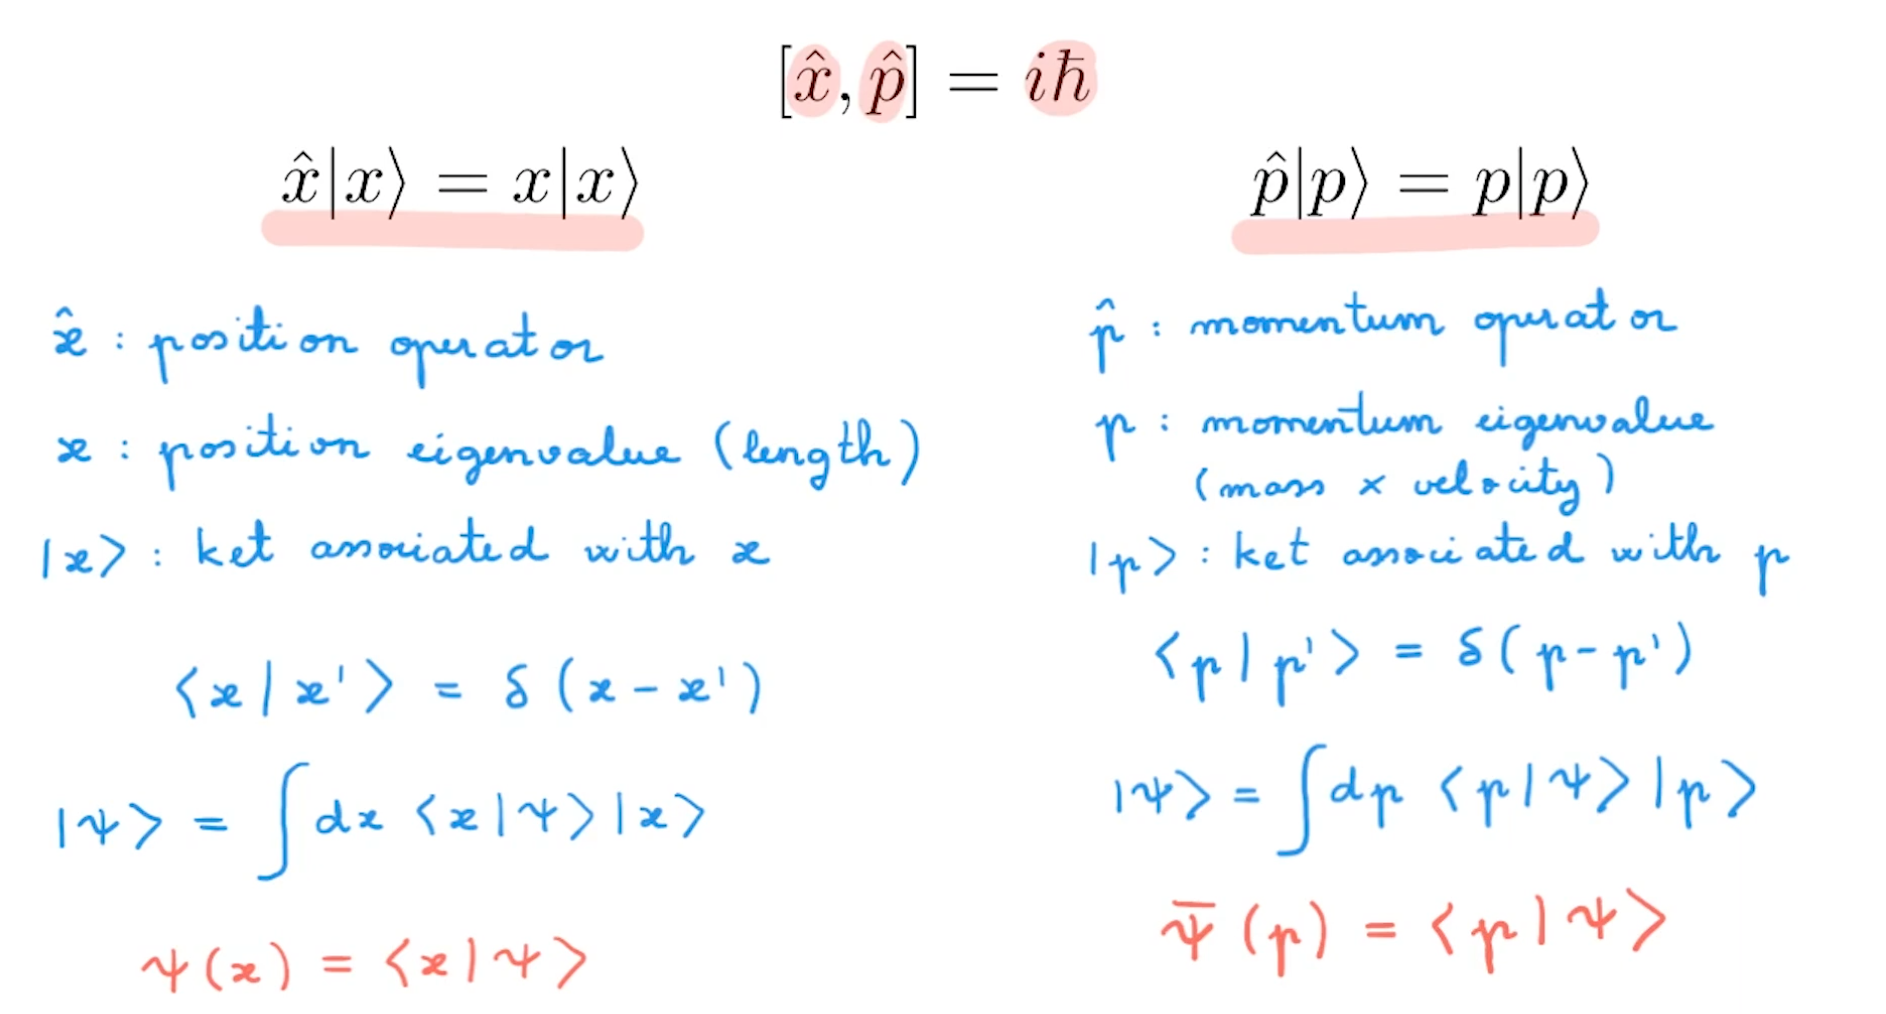 [x̂, p̂] = iħ
x̂|x⟩ = x|x⟩
x̂ : position operator
x : position eigenvalue (length)
|x⟩ : ket associated with x
⟨x|x'⟩ = δ(x - x')
|ψ⟩ = ∫dx ⟨x|ψ⟩|x⟩
ψ(x) = ⟨x|ψ⟩
p̂|p⟩ = p|p⟩
p̂ : momentum operator
p : momentum eigenvalue
(mass × velocity)
|p⟩ : ket associated with p
⟨p|p'⟩ = δ(p - p')
|ψ⟩ = ∫dp ⟨p|ψ⟩|p⟩
ψ̄(p) = ⟨p|ψ⟩